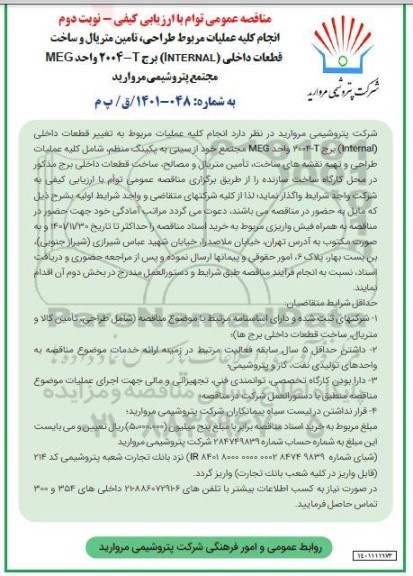 مناقصه عمومی توام با ارزیابی کیفی – نوبت دوم
انجام کلیه عملیات مربوط طراحی، تامین متریال و ساخت
قطعات داخلی (INTERNAL) برج T–۲۰۰۴ واحد MEG
مجتمع پتروشیمی مروارید
به شماره: ۰۴۸–۱۴۰۱/ق/ پ م
شرکت پتروشیمی مروارید
شرکت پتروشیمی مروارید در نظر دارد انجام کلیه عملیات مربوط به تغییر قطعات داخلی
(Internal) برج T-۲۰۰۴ واحد MEG مجتمع خود از سینی به پکینگ منظم، شامل کلیه عملیات
طراحی و تهیه نقشه های ساخت، تأمین متریال و مصالح، ساخت قطعات داخلی برج مذکور
در محل کارگاه ساخت سازنده را از طریق برگزاری مناقصه عمومی توام با ارزیابی کیفی به
شرکت واجد شرایط واگذار نماید؛ لذا از کلیه شرکتهای متقاضی و واجد شرایط اولیه بشرح ذیل
که مایل به حضور در مناقصه می باشند، دعوت می گردد مراتب آمادگی خود جهت حضور در
مناقصه به همراه فیش واریزی مربوط به خرید اسناد مناقصه را حداکثر تا تاریخ ۱۴۰۱/۱۱/۳۰ و به
صورت مکتوب به آدرس تهران، خیابان ملاصدرا، خیابان شهید عباس شیرازی (شیراز جنوبی)،
بن بست بهار، پلاک ۶، امور حقوقی و پیمانها ارسال نموده و پس از مراجعه حضوری و دریافت
اسناد، نسبت به انجام فرآیند مناقصه طبق شرایط و دستورالعمل مندرج در بخش دوم آن اقدام
نمایند.
حداقل شرایط متقاضیان:
۱- شرکتهای ثبت شده و دارای اساسنامه مرتبط با موضوع مناقصه (شامل طراحی، تأمین کالا و
متریال، ساخت قطعات داخلی برج ها)؛
۲- داشتن حداقل ۵ سال سابقه فعالیت مرتبط در زمینه ارائه خدمات موضوع مناقصه به
واحدهای تولیدی نفت، گاز و پتروشیمی؛
۳- دارا بودن کارگاه تخصصی، توانمندی فنی، تجهیزاتی و مالی جهت اجرای عملیات موضوع
مناقصه منطبق با دستورالعمل شرکت در مناقصه؛
۴- قرار نداشتن در لیست سیاه پیمانکاران شرکت پتروشیمی مروارید؛
مبلغ مربوط به خرید اسناد مناقصه برابر با مبلغ پنج میلیون (۵،۰۰۰،۰۰۰) ریال تعیین و می بایست
این مبلغ به شماره حساب شماره ۲۸۴۷۴۹۸۳۹ شرکت پتروشیمی مروارید
(شبای شماره IR ۸۴۰۱ ۸۰۰۰ ۰۰۰۰ ۰۰۰۲ ۸۴۷۴ ۹۸۳۹) نزد بانک تجارت شعبه پتروشیمی کد ۲۱۴
(قابل واریز در کلیه شعب بانک تجارت) واریز گردد.
در صورت نیاز به کسب اطلاعات بیشتر با تلفن های ۶-۸۸۶۰۷۲۹۱-۲۱ داخلی های ۳۵۴ و ۳۰۰
تماس حاصل فرمایید.
روابط عمومی و امور فرهنگی شرکت پتروشیمی مروارید
۱۴۰۱۱۱۱۱۷۳